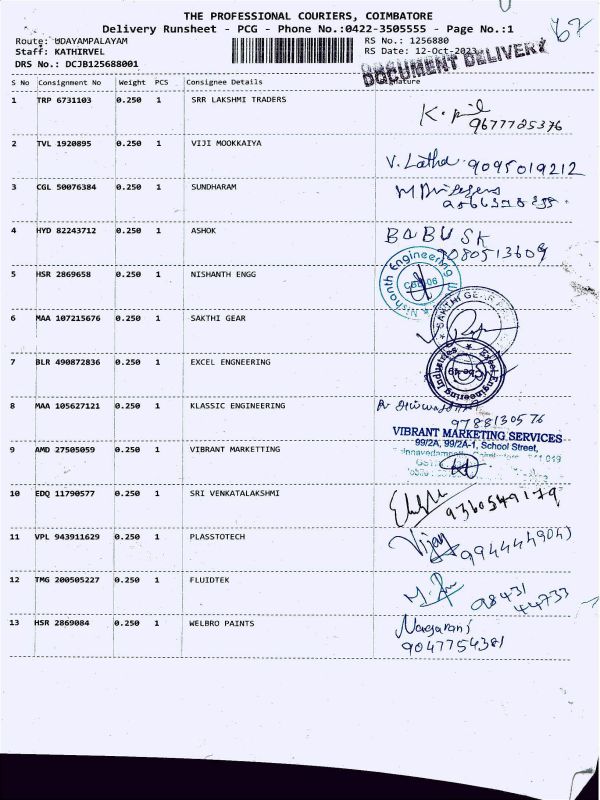 THE PROFESSIONAL COURIERS, COIMBATORE
Delivery Runsheet - PCG - Phone No.:0422-3505555 - Page No.:1
67
Route: UDAYAMPALAYAM
RS No.: 1256880
Staff: KATHIRVEL
RS Date: 12-Oct-2023
DRS No.: DCJB125688001
DOCUMENT DELIVERY
S No Consignment No Weight PCS Consignee Details Signature
1 TRP 6731103 0.250 1 SRR LAKSHMI TRADERS
9677725376
2 TVL 1920895 0.250 1 VIJI MOOKKAIYA
V. Latha 9095019212
3 CGL 50076384 0.250 1 SUNDHARAM
4 HYD 82243712 0.250 1 ASHOK
BABU SK
9080513609
5 HSR 2869658 0.250 1 NISHANTH ENGG
Nishanth Engineering
CBE-06
6 MAA 107215676 0.250 1 SAKTHI GEAR
SAKTHI GEAR
7 BLR 490872836 0.250 1 EXCEL ENGNEERING
Excel Engineering Industries
8 MAA 105627121 0.250 1 KLASSIC ENGINEERING
9788130576
9 AMD 27505059 0.250 1 VIBRANT MARKETTING
VIBRANT MARKETING SERVICES
99/2A, 99/2A-1, School Street,
10 EDQ 11790577 0.250 1 SRI VENKATALAKSHMI
9360549179
11 VPL 943911629 0.250 1 PLASSTOTECH
Vijay
12 TMG 200505227 0.250 1 FLUIDTEK
98431
44733
13 HSR 2869084 0.250 1 WELBRO PAINTS
Nagarani
9047754381